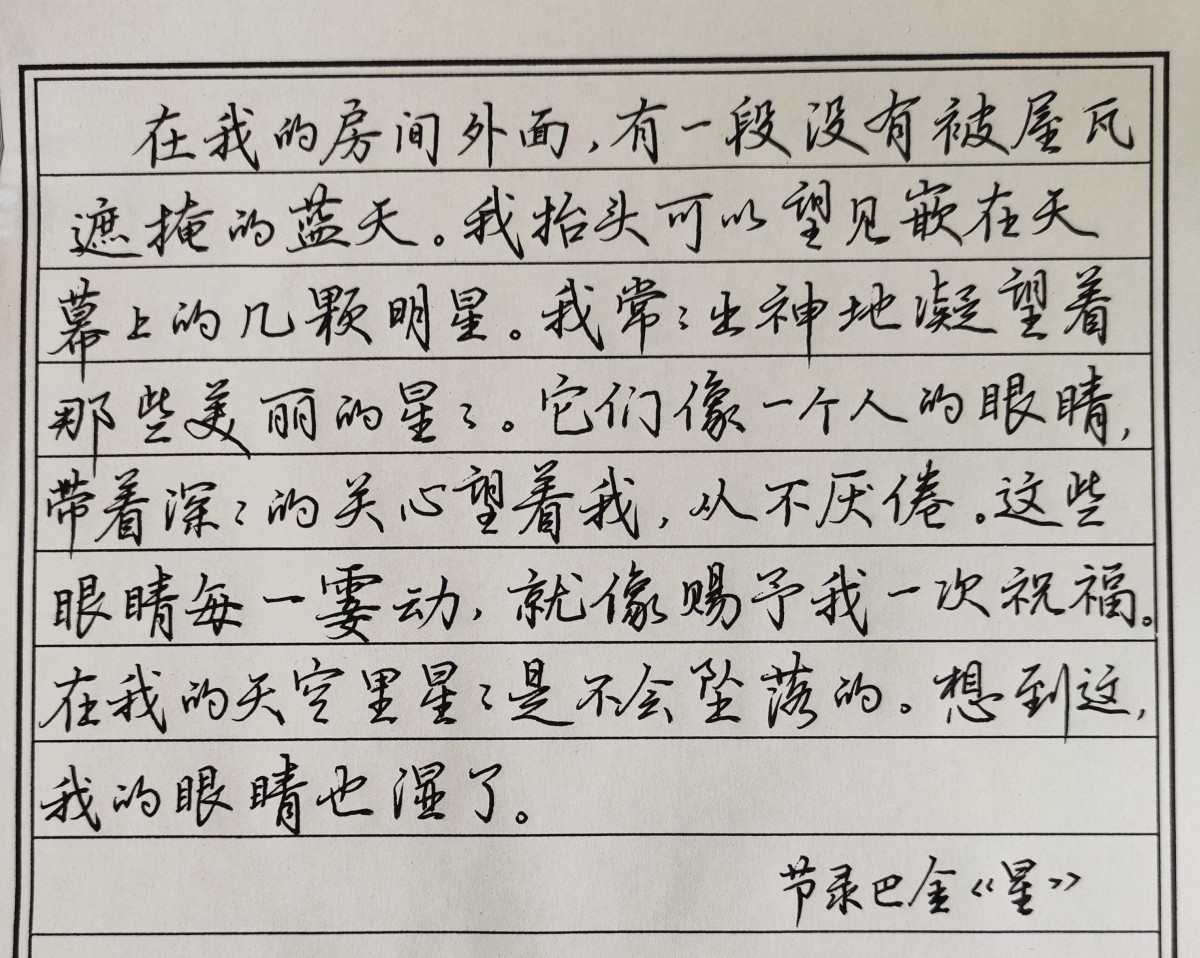 在我的房间外面,有一段没有被屋瓦
遮掩的蓝天。我抬头可以望见嵌在天
幕上的几颗明星。我常〻出神地凝望着
那些美丽的星〻。它们像一个人的眼睛,
带着深〻的关心望着我,从不厌倦。这些
眼睛每一霎动,就像赐予我一次祝福。
在我的天空里星〻是不会坠落的。想到这,
我的眼睛也湿了。
节录巴金《星》